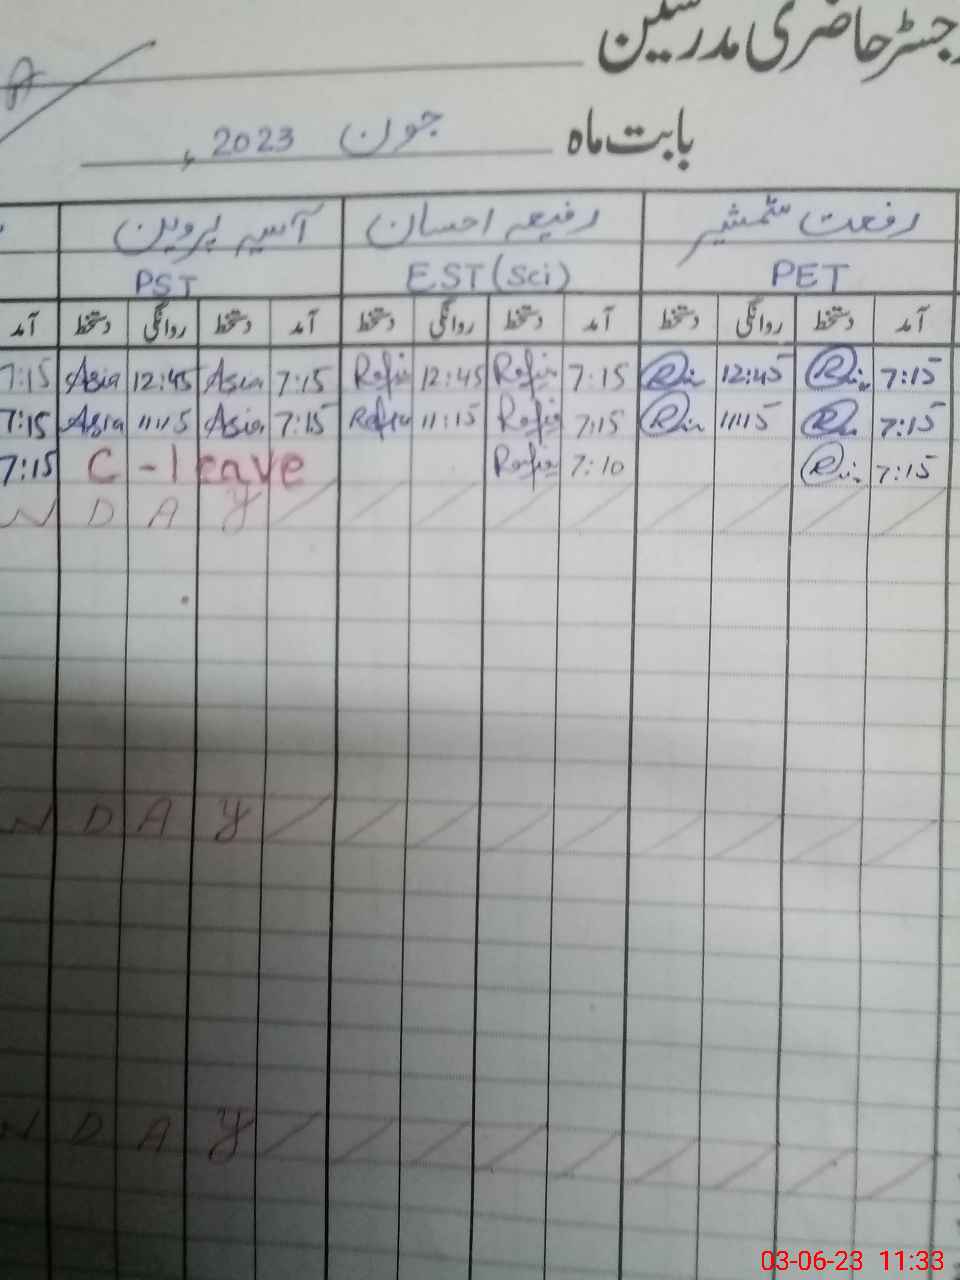 رجسٹر حاضری مدرسین
A
بابت ماہ جون 2023ء
رفعت شمشیر رفیعہ احسان آسیہ پروین
PET EST (Sci) PST
آمد دستخط روانگی دستخط آمد دستخط روانگی دستخط آمد دستخط روانگی دستخط آمد
7:15 Asia 12:45 Asia 7:15 Rafia 12:45 Rafia 7:15 12:45 7:15
7:15 Asia 11:15 Asia 7:15 Rafia 11:15 Rafia 7:15 11:15 7:15
7:15 C-leave Rafia 7:10 7:15
N D A Y
N D A Y
N D A Y
03-06-23 11:33